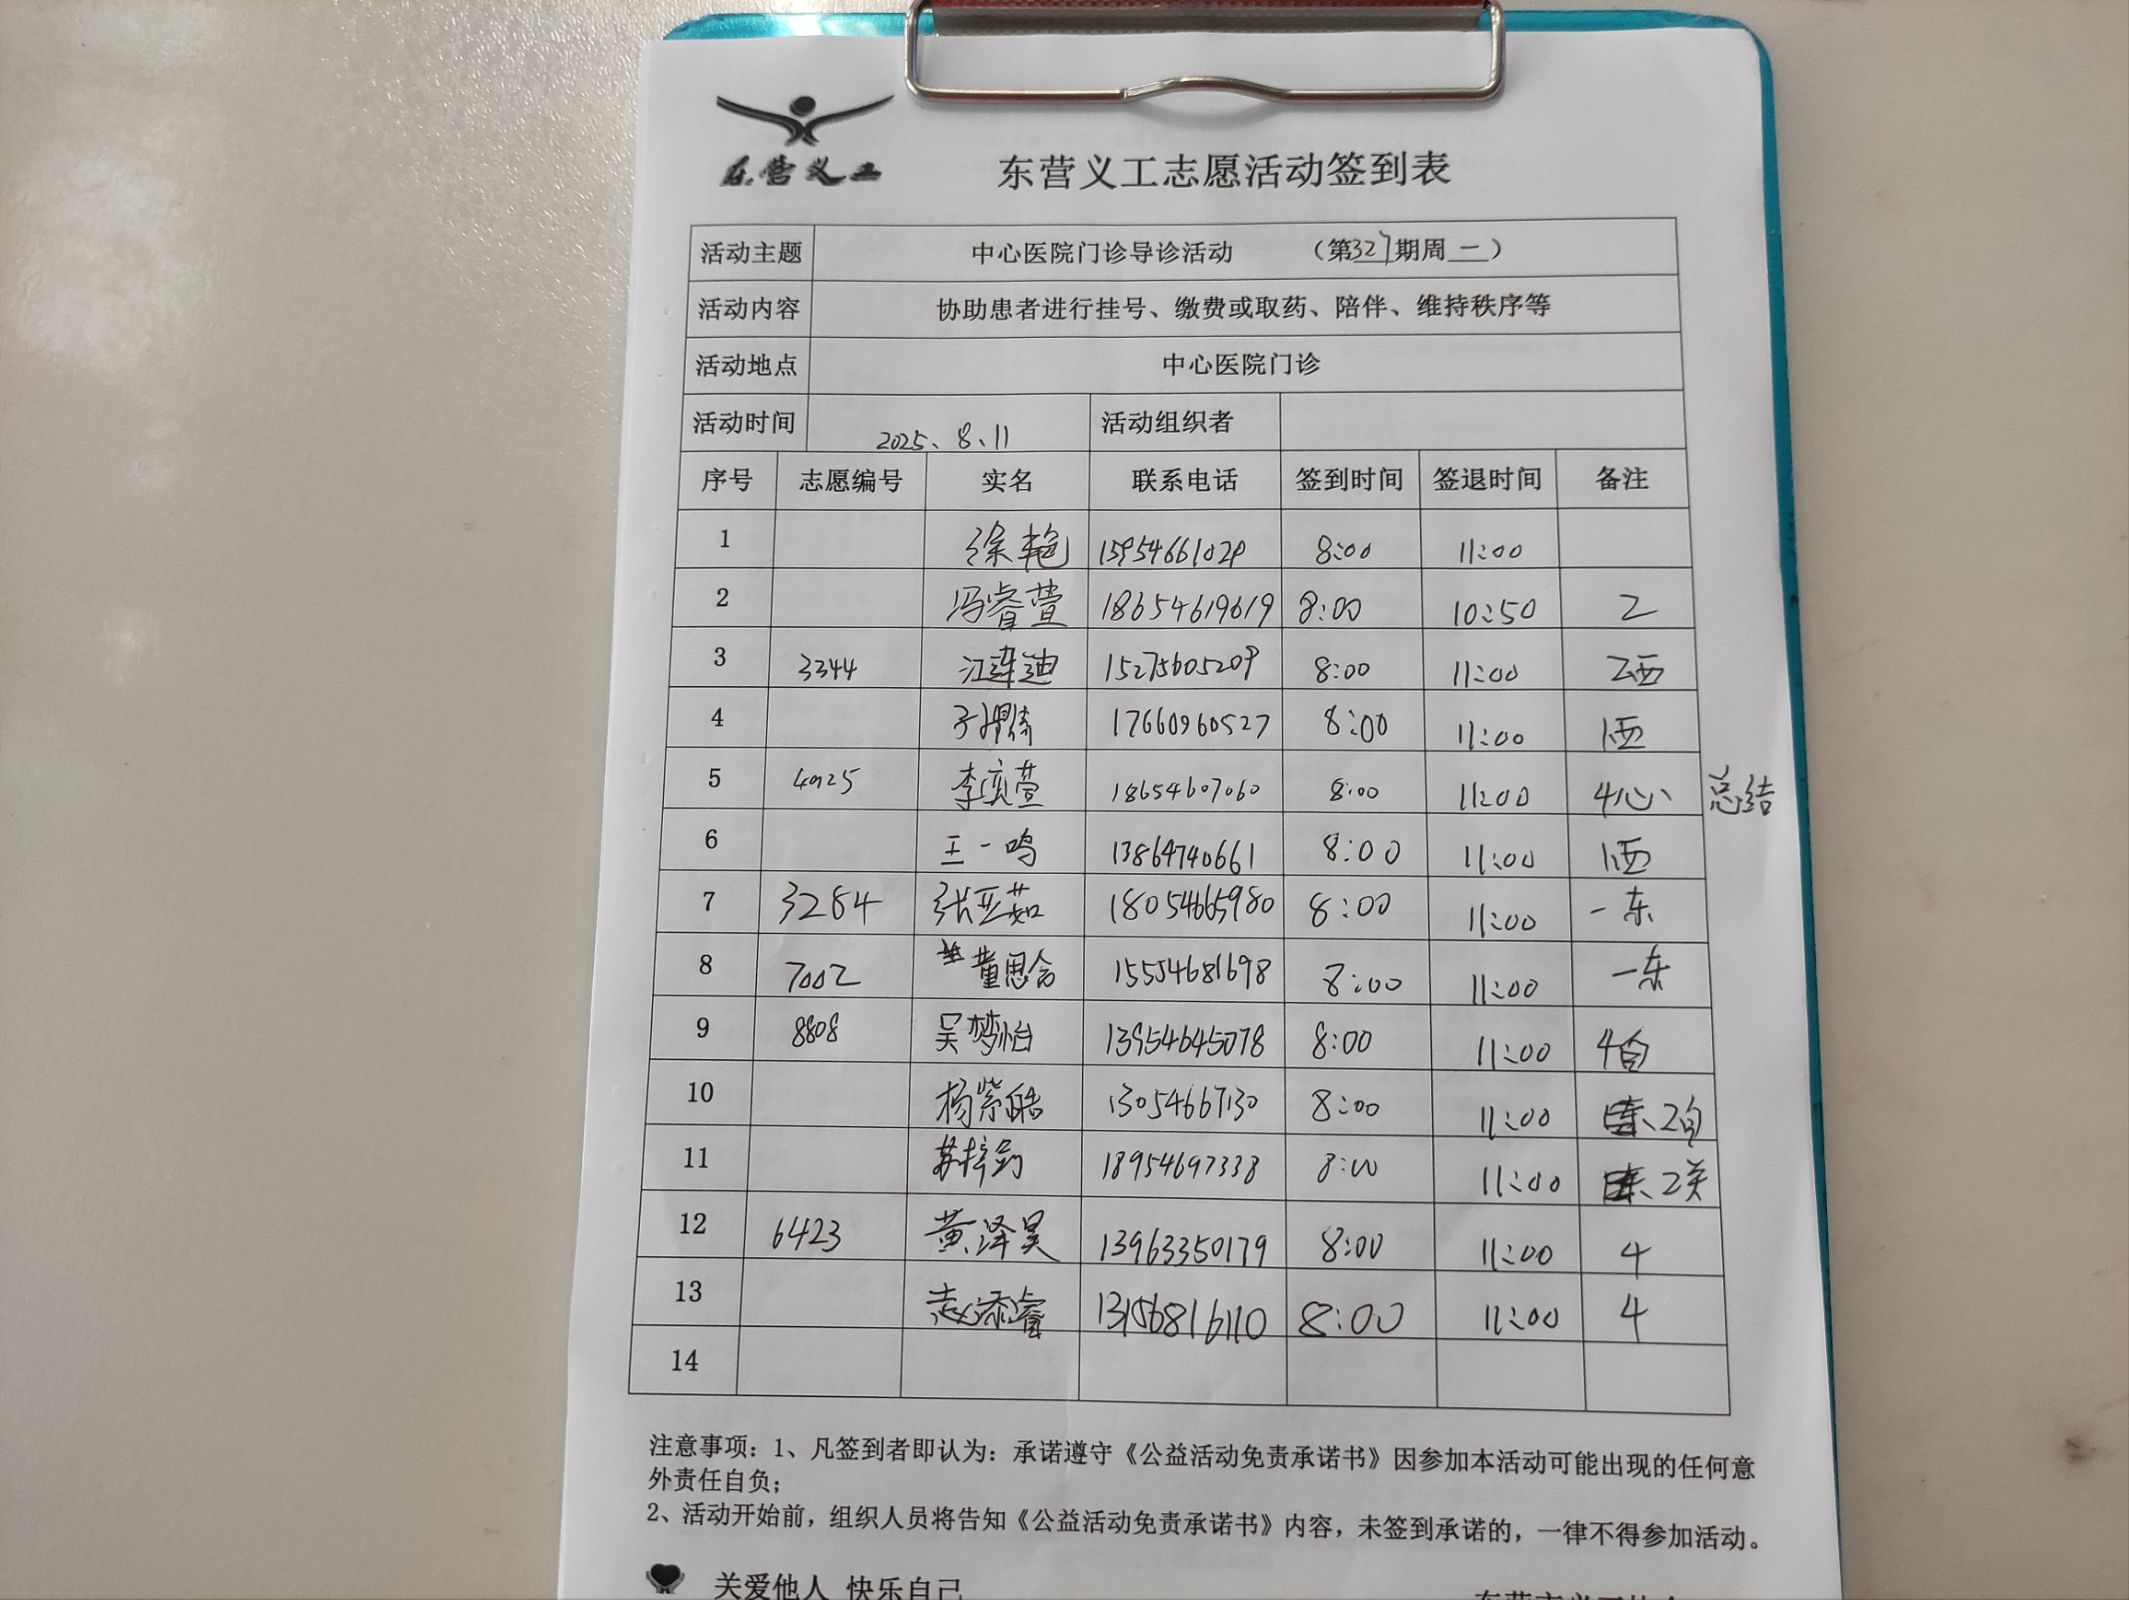 东营义工
东营义工志愿活动签到表
活动主题 中心医院门诊导诊活动 （第327期周一）
活动内容 协助患者进行挂号、缴费或取药、陪伴、维持秩序等
活动地点 中心医院门诊
活动时间 2025、8、11 活动组织者
序号 志愿编号 实名 联系电话 签到时间 签退时间 备注
1 徐艳 15954661029 8:00 11:00
2 冯睿萱 18654619619 8:00 10:50 2
3 3344 江连迪 15275605209 8:00 11:00 2西
4 17660960527 8:00 11:00 1西
5 4925 李奕萱 18654607060 8:00 11:00 4心 总结
6 王一鸣 13864740661 8:00 11:00 1西
7 3284 张亚茹 18054665980 8:00 11:00 一东
8 7002 董思含 15554681698 8:00 11:00 一东
9 8808 吴梦怡 13954645078 8:00 11:00 4自
10 杨紫皓 13054667130 8:00 11:00 2自
11 苏梓钧 18954697338 8:00 11:00 2关
12 6423 黄泽昊 13963350179 8:00 11:00 4
13 赵添睿 13156816110 8:00 11:00 4
14
注意事项：1、凡签到者即认为：承诺遵守《公益活动免责承诺书》因参加本活动可能出现的任何意
外责任自负；
2、活动开始前，组织人员将告知《公益活动免责承诺书》内容，未签到承诺的，一律不得参加活动。
关爱他人 快乐自己